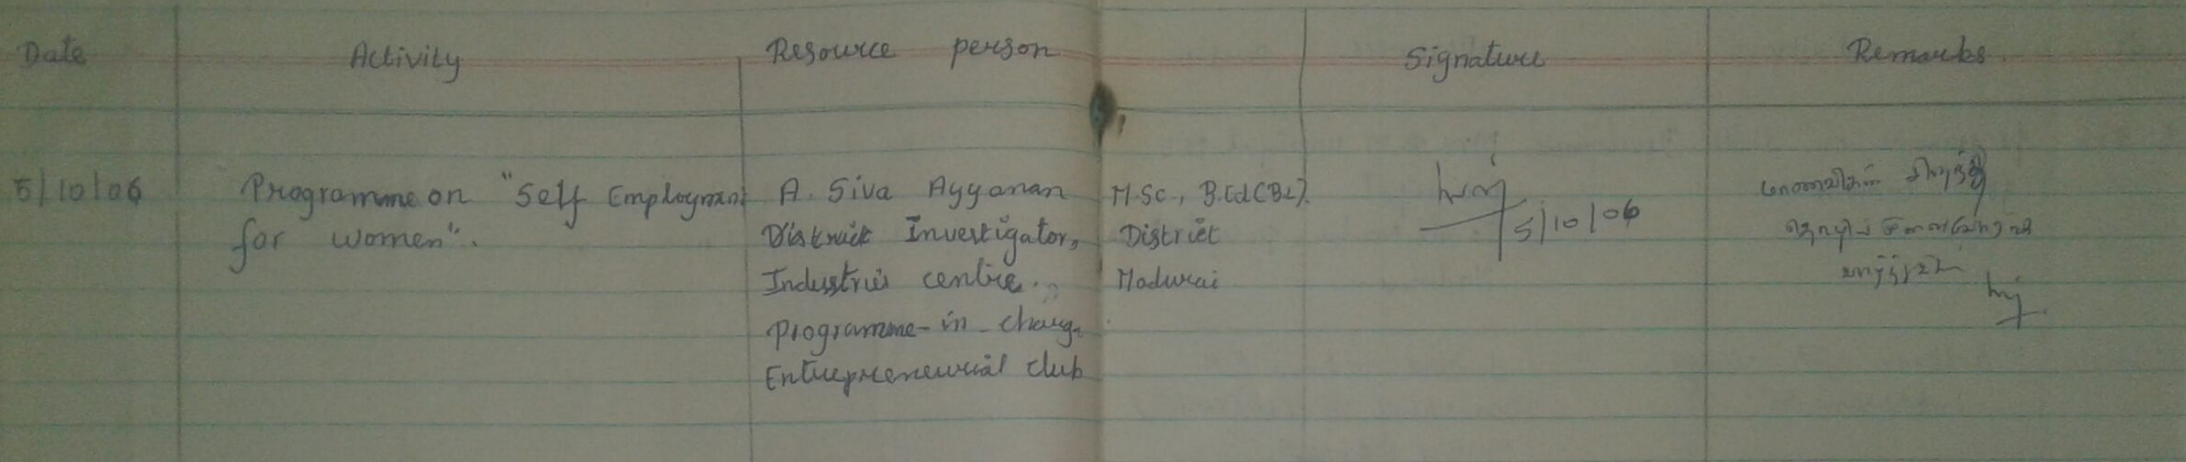 Date Activity Resource person Signature Remarks
5/10/06 Programme on "Self Employment A. Siva Ayyanan M.Sc., B.Ed(BL).
for women". District Investigator, District 5/10/06
Industries centre. Madurai
Programme-in-charge
Entrepreneurial club